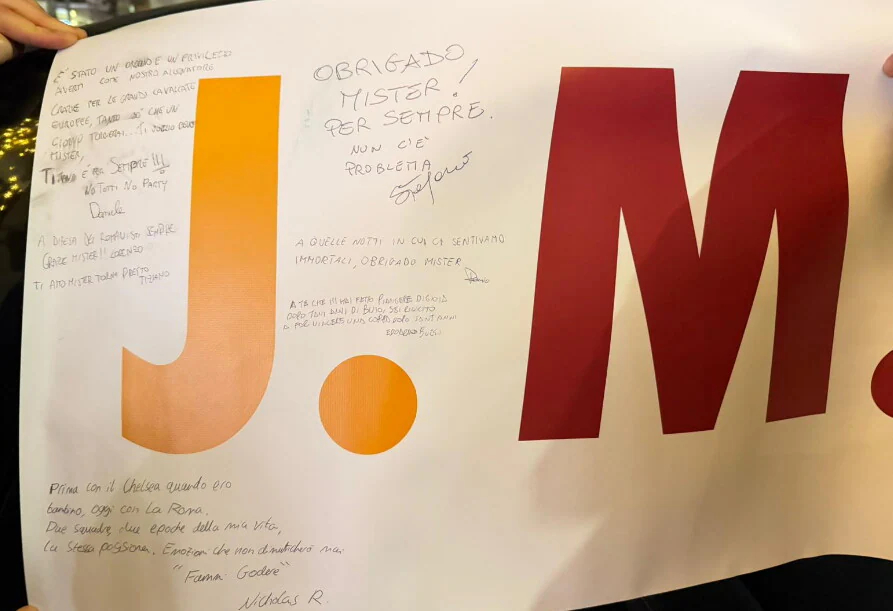 È STATO UN ONORE E UN PRIVILEGIO
AVERTI COME NOSTRO ALLENATORE
GRAZIE PER LE GRANDI CAVALCATE
EUROPEE, CHE UN
GIORNO TORNERAI... TI
MISTER,
È PER SEMPRE!!!
NO TOTTI NO PARTY
Daniele
A DIFESA DEL ROMANISMO SEMPRE
GRAZIE MISTER!! LORENZO
TI AMO MISTER TORNA PRESTO
TIZIANO
OBRIGADO
MISTER!
PER SEMPRE.
NON C'E'
PROBLEMA
Stefano
A QUELLE NOTTI IN CUI CI SENTIVAMO
IMMORTALI, OBRIGADO MISTER
A TE CHE MI HAI FATTO PIANGERE DI GIOIA
DOPO ANNI DI BUIO, SEI RIUSCITO
A FAR VINCERE UNA COPPA DOPO ANNI
J.M.
Prima con il Chelsea quando ero
bambino, oggi con La Roma.
Due squadre, due epoche della mia vita,
la stessa posizione. Emozioni che non dimenticherò mai
"Fammi Godere"
Nicholas R.